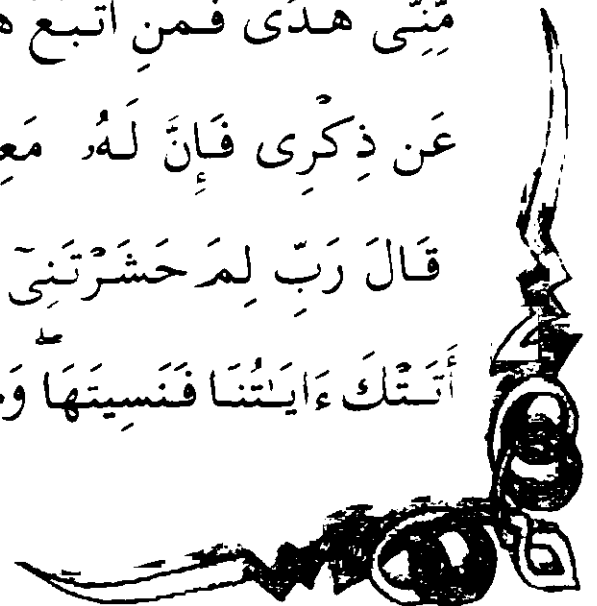 مِّنِّى هُدًى فَمَنِ ٱتَّبَعَ
عَن ذِكْرِى فَإِنَّ لَهُۥ
قَالَ رَبِّ لِمَ حَشَرْتَنِىٓ
أَتَتْكَ ءَايَـٰتُنَا فَنَسِيتَهَا ۖ